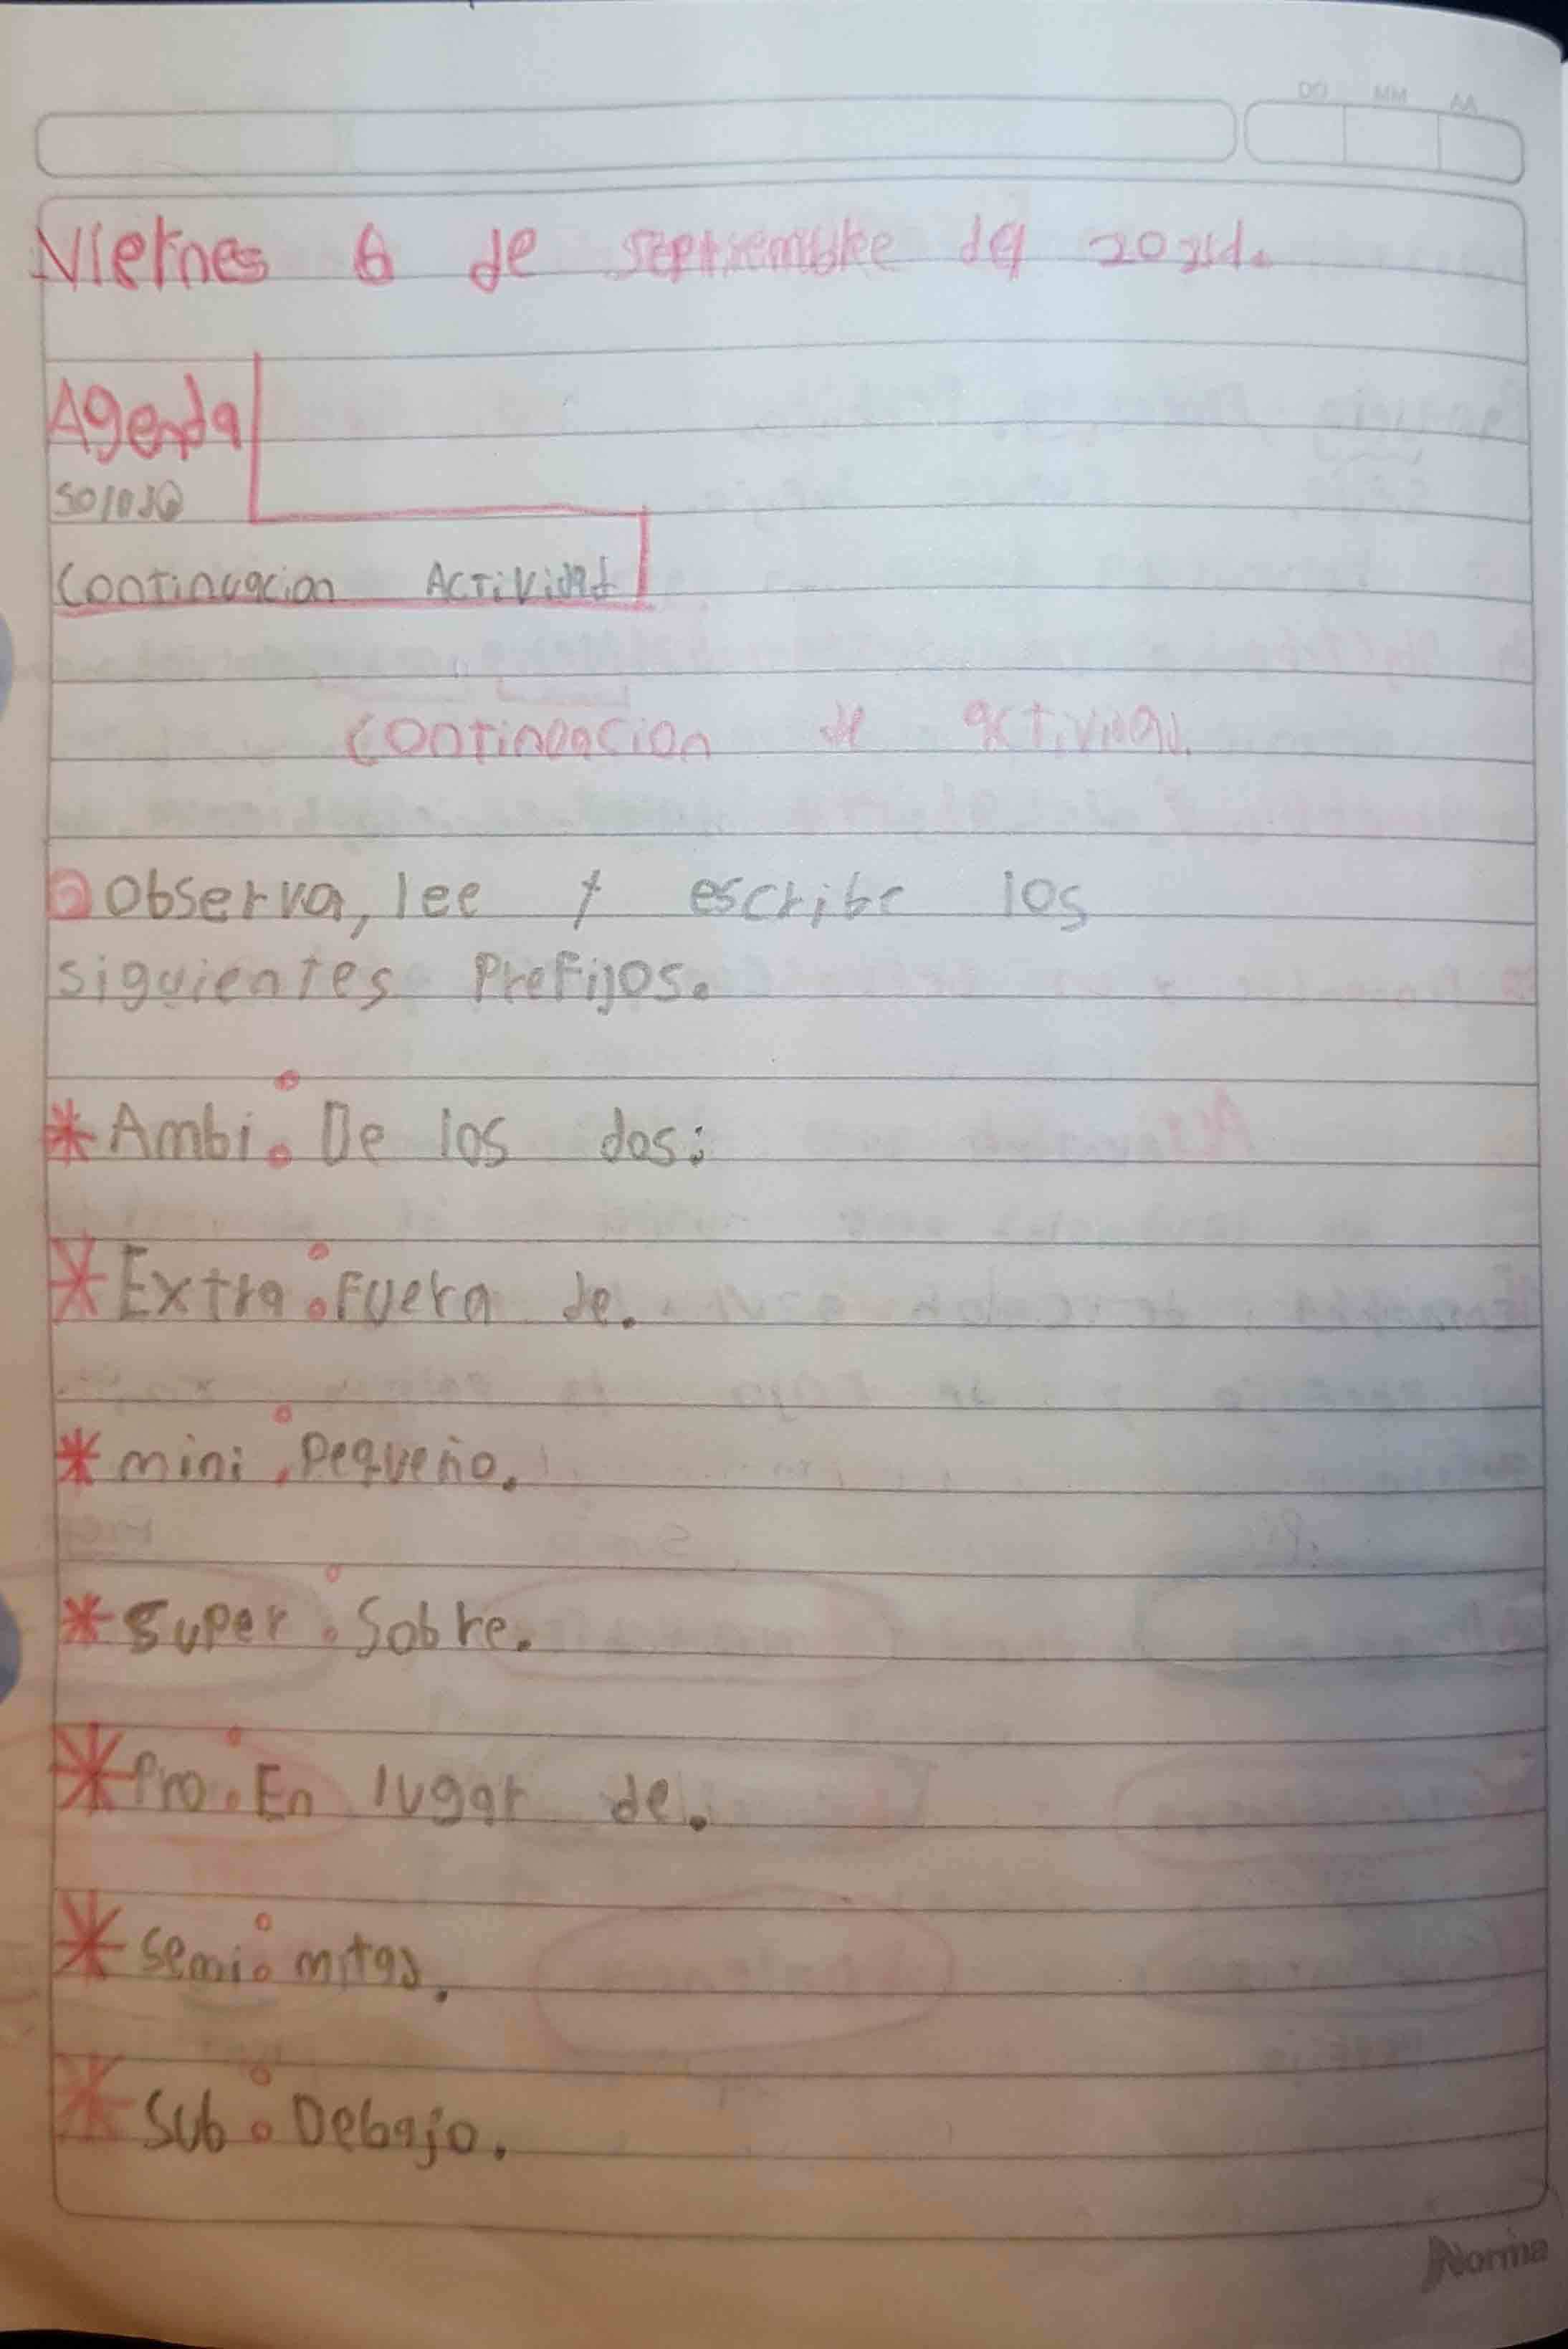 DD MM AA
Viernes 6 de septiembre del 2024.
Agenda
Saludo
Continuacion Actividad
Continuacion de actividad.
Observa, lee y escribe los
siguientes Prefijos.
* Ambi: De los dos:
* Extra: Fuera de.
* mini: Pequeño.
* Super: Sobre.
* Pro: En lugar de.
* semi: mitad.
* Sub: Debajo.
Norma